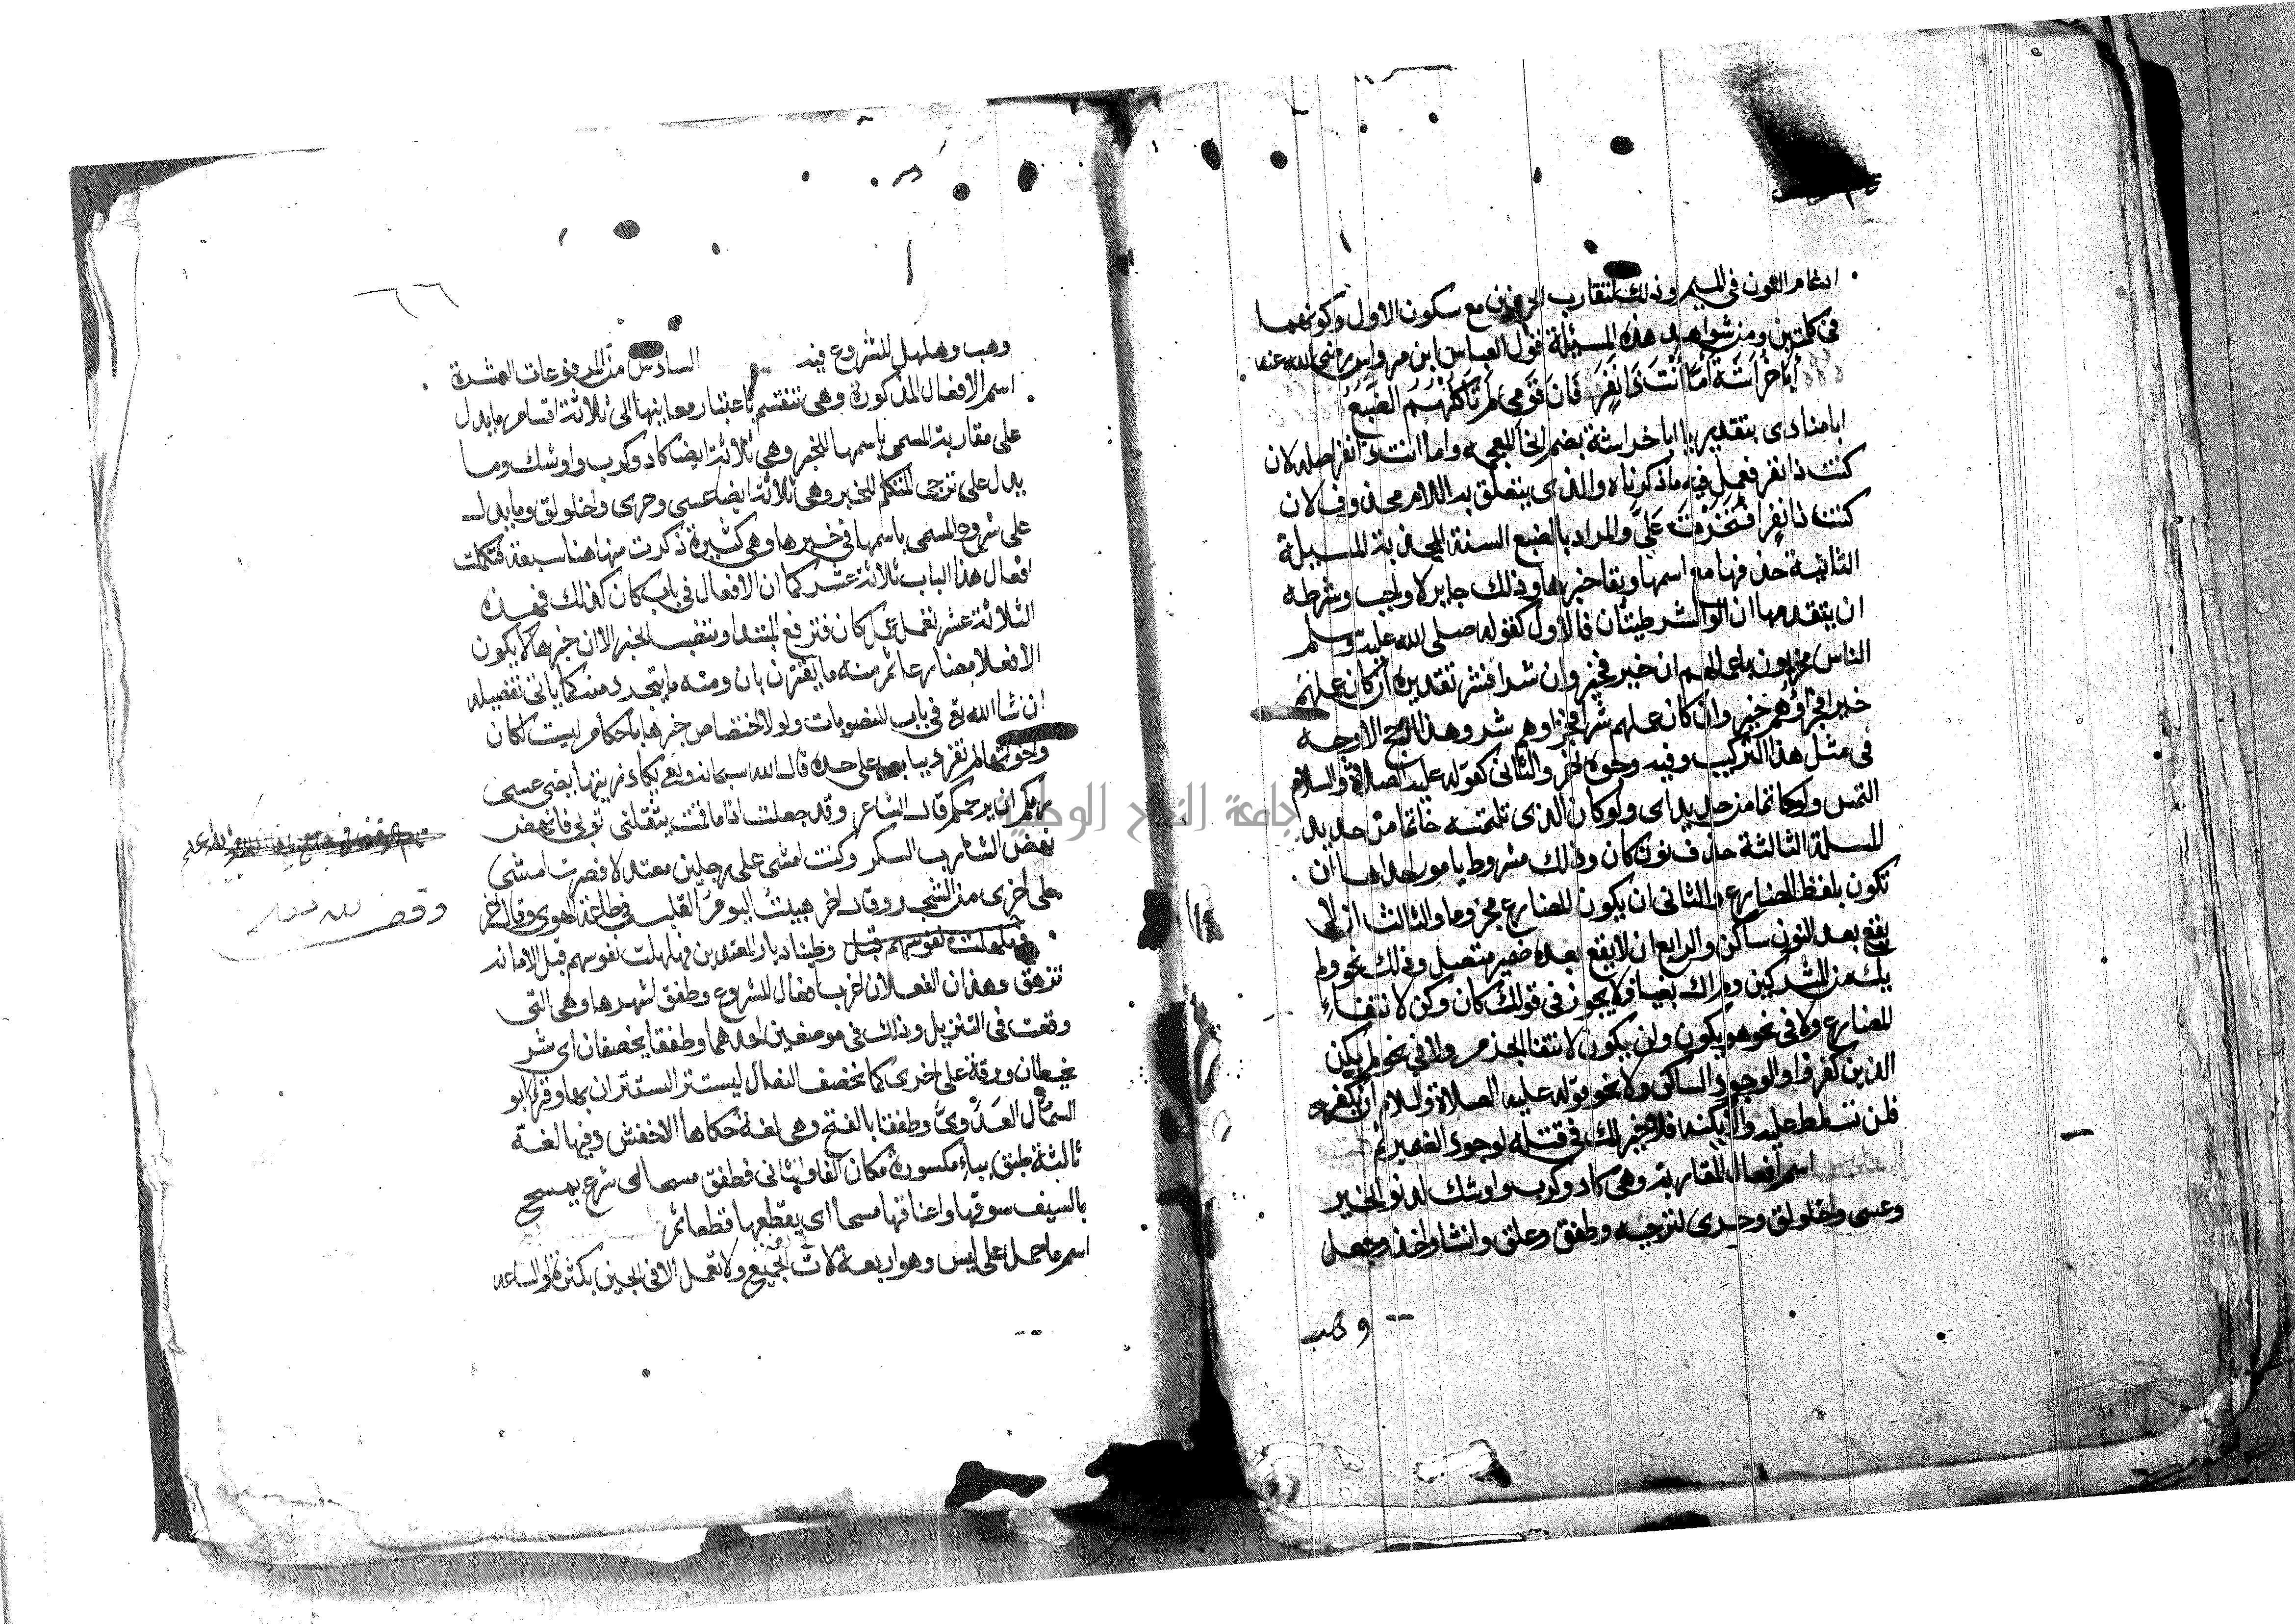 ادغام النون في الميم وذلك لتقارب الحرفين مع سكون الاول وكونهما
في كلمتين ومن شواهد هذه المسئلة قول العباس ابن مرداس رضي الله عنه
أبا خراشة أمّا أنت ذا نفر فان قومي لم تأكلهم الضبع
ابا منادى بتقدير يا ابا خراشة بضم الخا المعجمه واما انت ذا نفر اصله لان
كنت ذا نفر فعمل فيه ما ذكرناه والذي يتعلق به اللام محذوف لان
كنت ذا نفر افتخرت علي والمراد بالضبع السنة المجدبة المسيلة
الثانية حذفها مع اسمها وبقا خبرها وذلك جايز لا واجب وشرطه
ان يتقدمها ان او لو الشرطيتان فالاول كقوله صلى الله عليه وسلم
الناس مجزيون باعمالهم ان خير فخير وان شرا فشر تقديره ان كان عملهم
خيرا فجزاؤهم خير وان كان عملهم شرا فجزاوهم شر وهذا ارجح الاوجه
في مثل هذا التركيب وفيه وجوه اخر والثاني كقوله عليه الصلاة والسلام
التمس ولو خاتما من حديد اي ولو كان الذي تلتمسه خاتما من حديد
المسلة الثالثة حذف نون كان وذلك مشروط بامور احدها ان
تكون بلفظ المضارع والثاني ان يكون المضارع مجزوما والثالث ان لا
يقع بعد النون ساكن والرابع ان لا يقع بعده ضمير متصل وذلك نحو ولم
يك من المشركين ولم اك بغيا ولا يجوز في قولك كان وكن لانتفاء
المضارع ولا في نحو هو يكون ولن يكون لانتفا الجزم ولا في نحو لم يكن
الذين كفروا لوجود الساكن ولا نحو قوله عليه الصلاة والسلام ان يكنه
فلن تسلط عليه والا يكنه فلا خير لك في قتله لوجود الضمير ثم
اسم افعال المقاربة وهي كاد وكرب واوشك لدنو الخبر
وعسى واخلولق وحرى لترجيه وطفق وعلق وانشا واخذ وجعل
وهب
٦٦
وهب وهلهل للشروع فيه السادس من المرفوعات العشرة
اسم الافعال المذكورة وهي تنقسم باعتبار معانيها الى ثلاثة اقسام ما يدل
على مقاربة المسمى باسمها للخبر وهي ثلاثة ايضا كاد وكرب واوشك وما
يدل على ترجي المتكلم للخبر وهي ثلاثة ايضا عسى وحرى واخلولق وما يدل
على شروع المسمى باسمها في خبرها وهي كثيرة ذكرت منها هنا سبعة فتكملت
افعال هذا الباب ثلاثة عشر كما ان الافعال في باب كان كذلك فهذه
الثلاثة عشر تعمل عمل كان فترفع المبتدا وتنصب الخبر الا ان خبرها لا يكون
الا فعلا مضارعا ثم منه ما يقترن بان ومنه ما يتجرد منه كما ياتي تفصيله
ان شا الله تع في باب المنصوبات ولولا اختصاص خبرها باحكام ليست لكان
واخواتها لم تفرد بباب على حدة قال الله سبحانه وتعى يكاد زيتها يضي عسى
ربكم ان يرحمكم قال الشاعر وقد جعلت اذا ما قمت يثقلني ثوبي فانهض
نهض الشارب السكر وكنت امشي على رجلين معتدلا فصرت امشي
على اخرى من الشجر وقال اخر هببت الوم القلب في طاعة الهوى وقال اخر
وطئنا ديار المعتدين فهلهلت نفوسهم قبل الاماته
تزهق وهذان الفعلان اغرب افعال الشروع وطفق اشهرها وهي التي
وقعت في التنزيل وذلك في موضعين احدهما وطفقا يخصفان اي شر
يخيطان ورقة على اخرى كما تخصف النعال ليستتر السستتران بها وقرا ابو
السمّال العدوي وطفقا بالفتح وهي لغة حكاها الاخفش وفيها لغة
ثالثة طبق بباء مكسورة مكان الفا والثاني فطفق مسحا اي شرع يمسح
بالسيف سوقها واعناقها مسحا اي يقطعها قطعا ثم
اسم ما حمل على ليس وهو اربعة لات في الجميع ولا تعمل الا في الحين بكثرة او الساعه
وقف لله تعالى
جامعة النجاح الوطنية